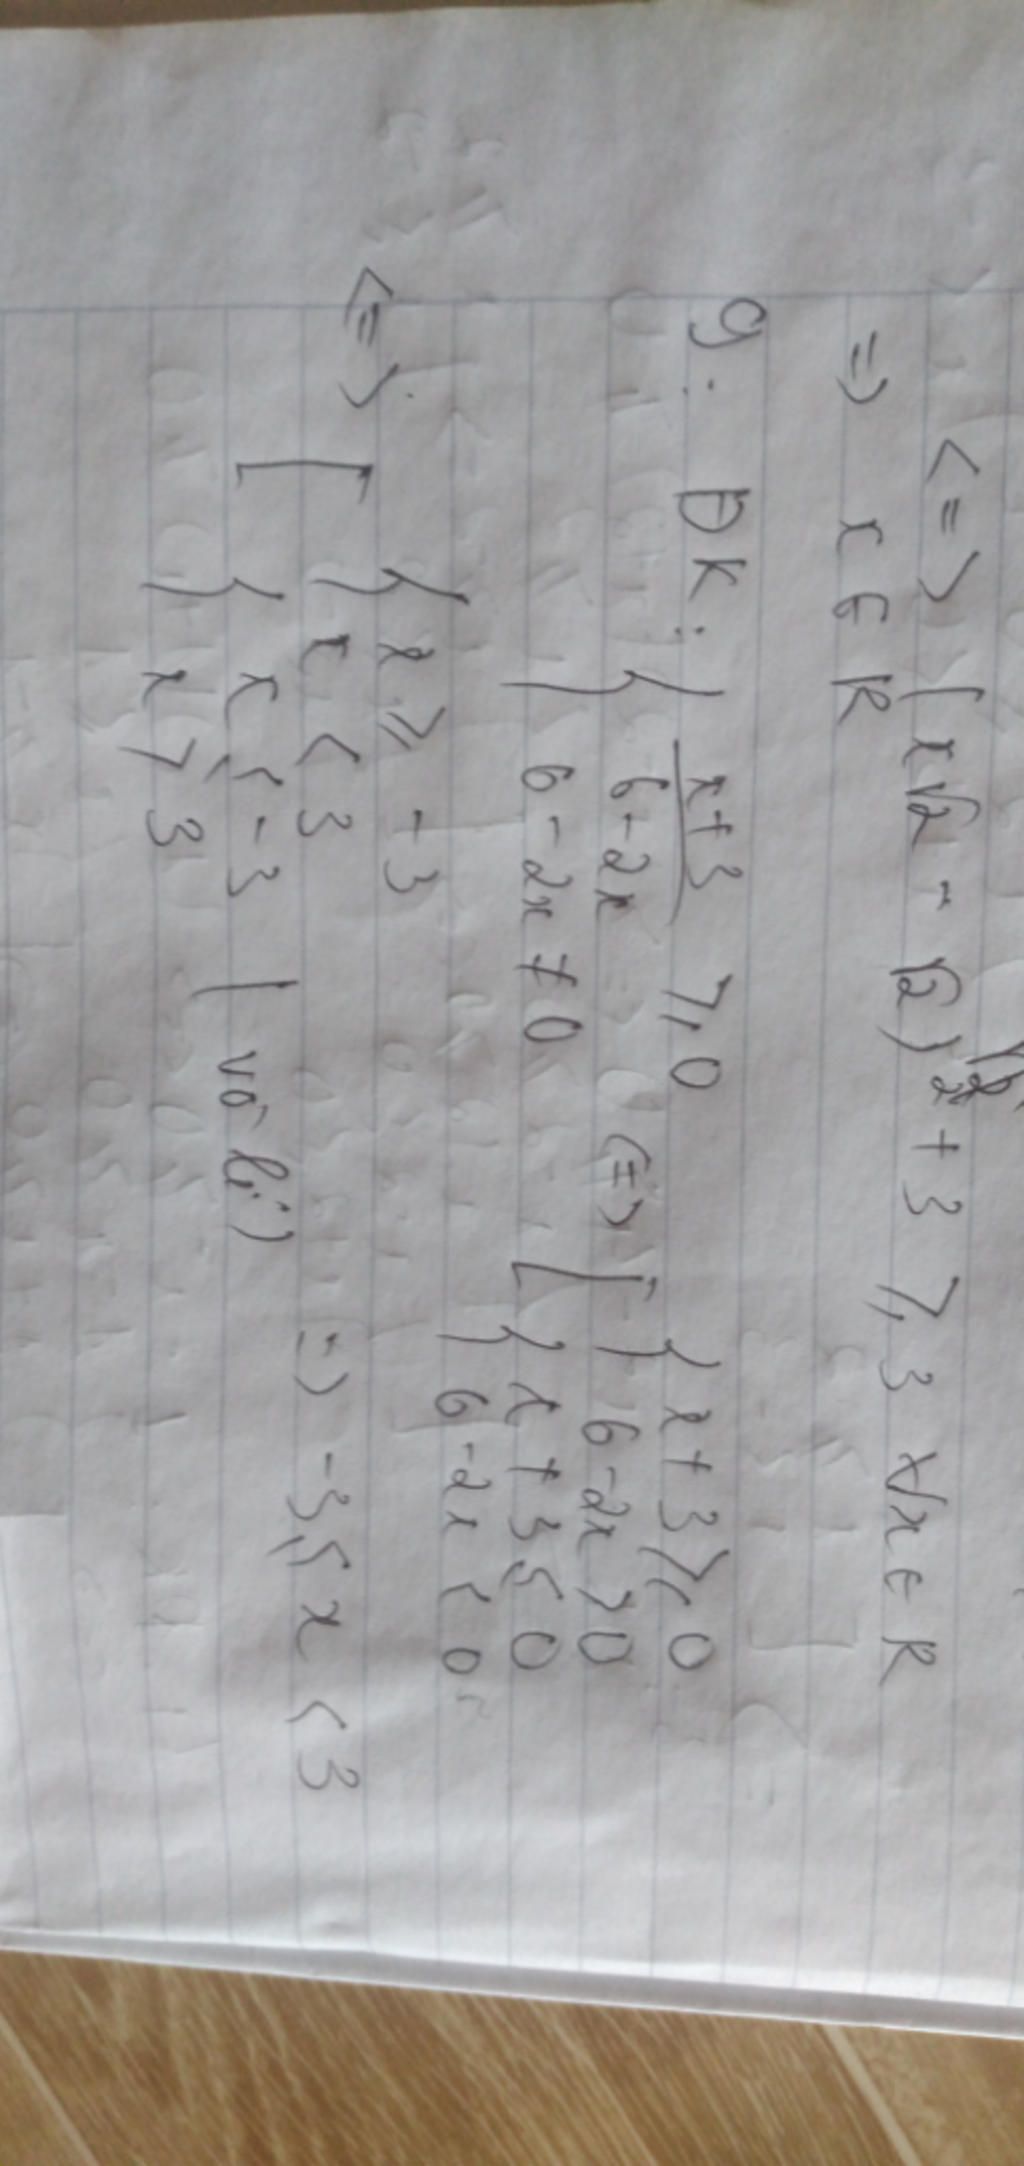 <=> (x√2 - √2)² + 3 ≥ 3 ∀x ∈ R
=> x ∈ R
g. ĐK: { x+3 / 6-2x ≥ 0
6-2x ≠ 0
<=> [ { x+3 ≥ 0
6-2x > 0
{ x+3 ≤ 0
6-2x < 0
<=> [ { x ≥ -3
x < 3
{ x ≤ -3
x > 3
| vô lí)
=> -3 ≤ x < 3